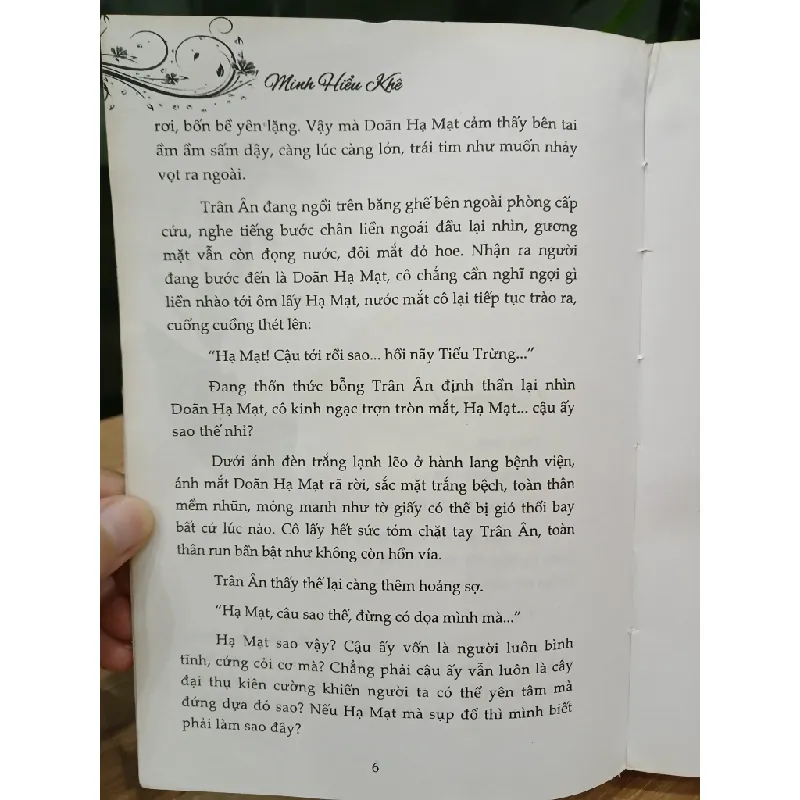 Minh Hiểu Khê
rơi, bốn bề yên lặng. Vậy mà Doãn Hạ Mạt cảm thấy bên tai
ầm ầm sấm dậy, càng lúc càng lớn, trái tim như muốn nhảy
vọt ra ngoài.
Trân Ân đang ngồi trên băng ghế bên ngoài phòng cấp
cứu, nghe tiếng bước chân liền ngoái đầu lại nhìn, gương
mặt vẫn còn đọng nước, đôi mắt đỏ hoe. Nhận ra người
đang bước đến là Doãn Hạ Mạt, cô chẳng cần nghĩ ngợi gì
liền nhào tới ôm lấy Hạ Mạt, nước mắt cô lại tiếp tục trào ra,
cuống cuồng thét lên:
“Hạ Mạt! Cậu tới rồi sao... hồi nãy Tiểu Trừng...”
Đang thổn thức bỗng Trân Ân định thần lại nhìn
Doãn Hạ Mạt, cô kinh ngạc trợn tròn mắt, Hạ Mạt... cậu ấy
sao thế nhỉ?
Dưới ánh đèn trắng lạnh lẽo ở hành lang bệnh viện,
ánh mắt Doãn Hạ Mạt rã rời, sắc mặt trắng bệch, toàn thân
mềm nhũn, mỏng manh như tờ giấy có thể bị gió thổi bay
bất cứ lúc nào. Cô lấy hết sức tóm chặt tay Trân Ân, toàn
thân run bần bật như không còn hồn vía.
Trân Ân thấy thế lại càng thêm hoảng sợ.
“Hạ Mạt, cậu sao thế, đừng có dọa mình mà...”
Hạ Mạt sao vậy? Cậu ấy vốn là người luôn bình
tĩnh, cứng cỏi cơ mà? Chẳng phải cậu ấy vẫn luôn là cây
đại thụ kiên cường khiến người ta có thể yên tâm mà
đứng dựa đó sao? Nếu Hạ Mạt mà sụp đổ thì mình biết
phải làm sao đây?
6